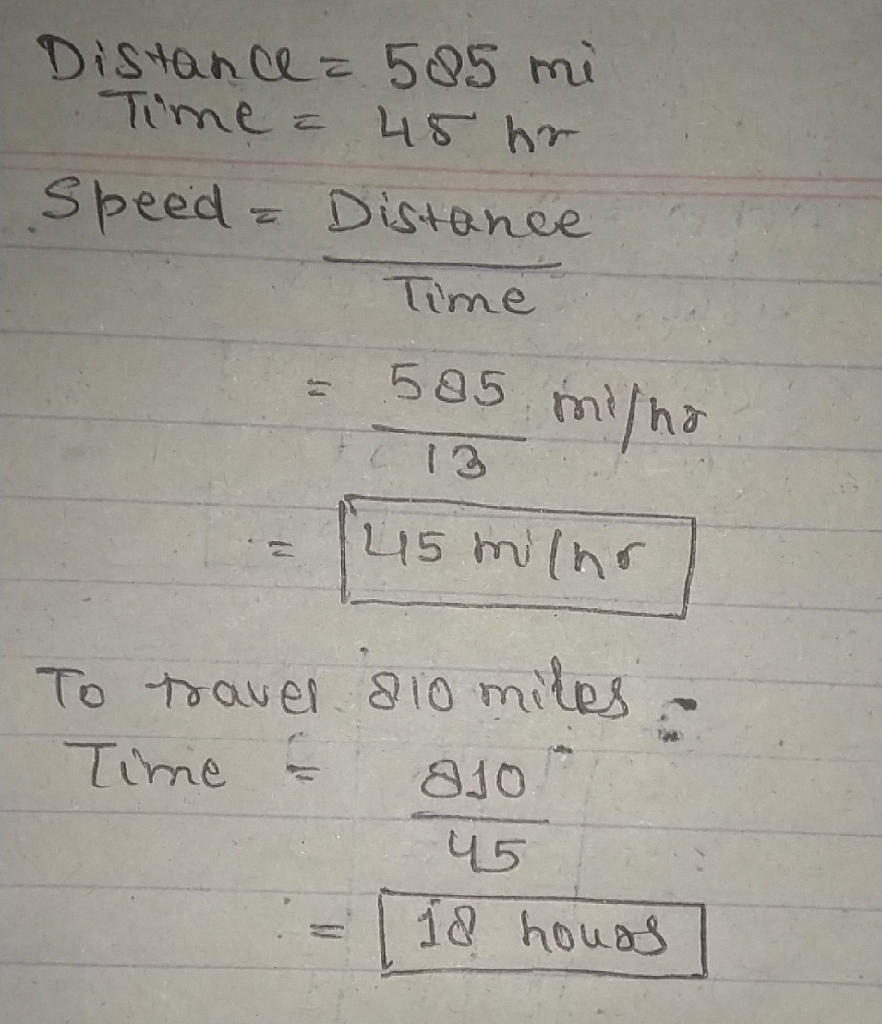 Distance = 585 mi
Time = 45 hr
Speed = Distance
Time
= 585 mi/hr
13
= 45 mi/hr
To travel 810 miles -
Time = 810
45
= 18 hours